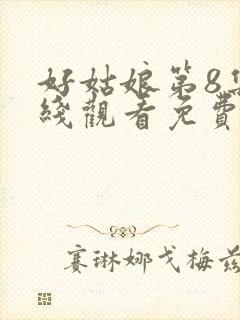 好姑娘第8
綫觀看免費
賽琳娜戈梅